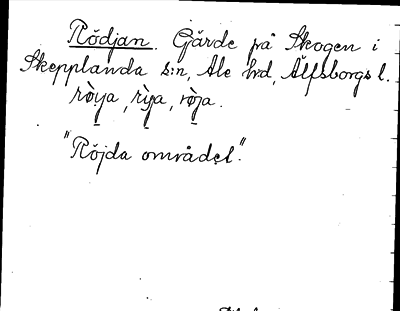 Rödjan. Gärde på Skogen i
Skepplanda s:n, Ale hrd, Älfsborgs l.
"Röjda området".